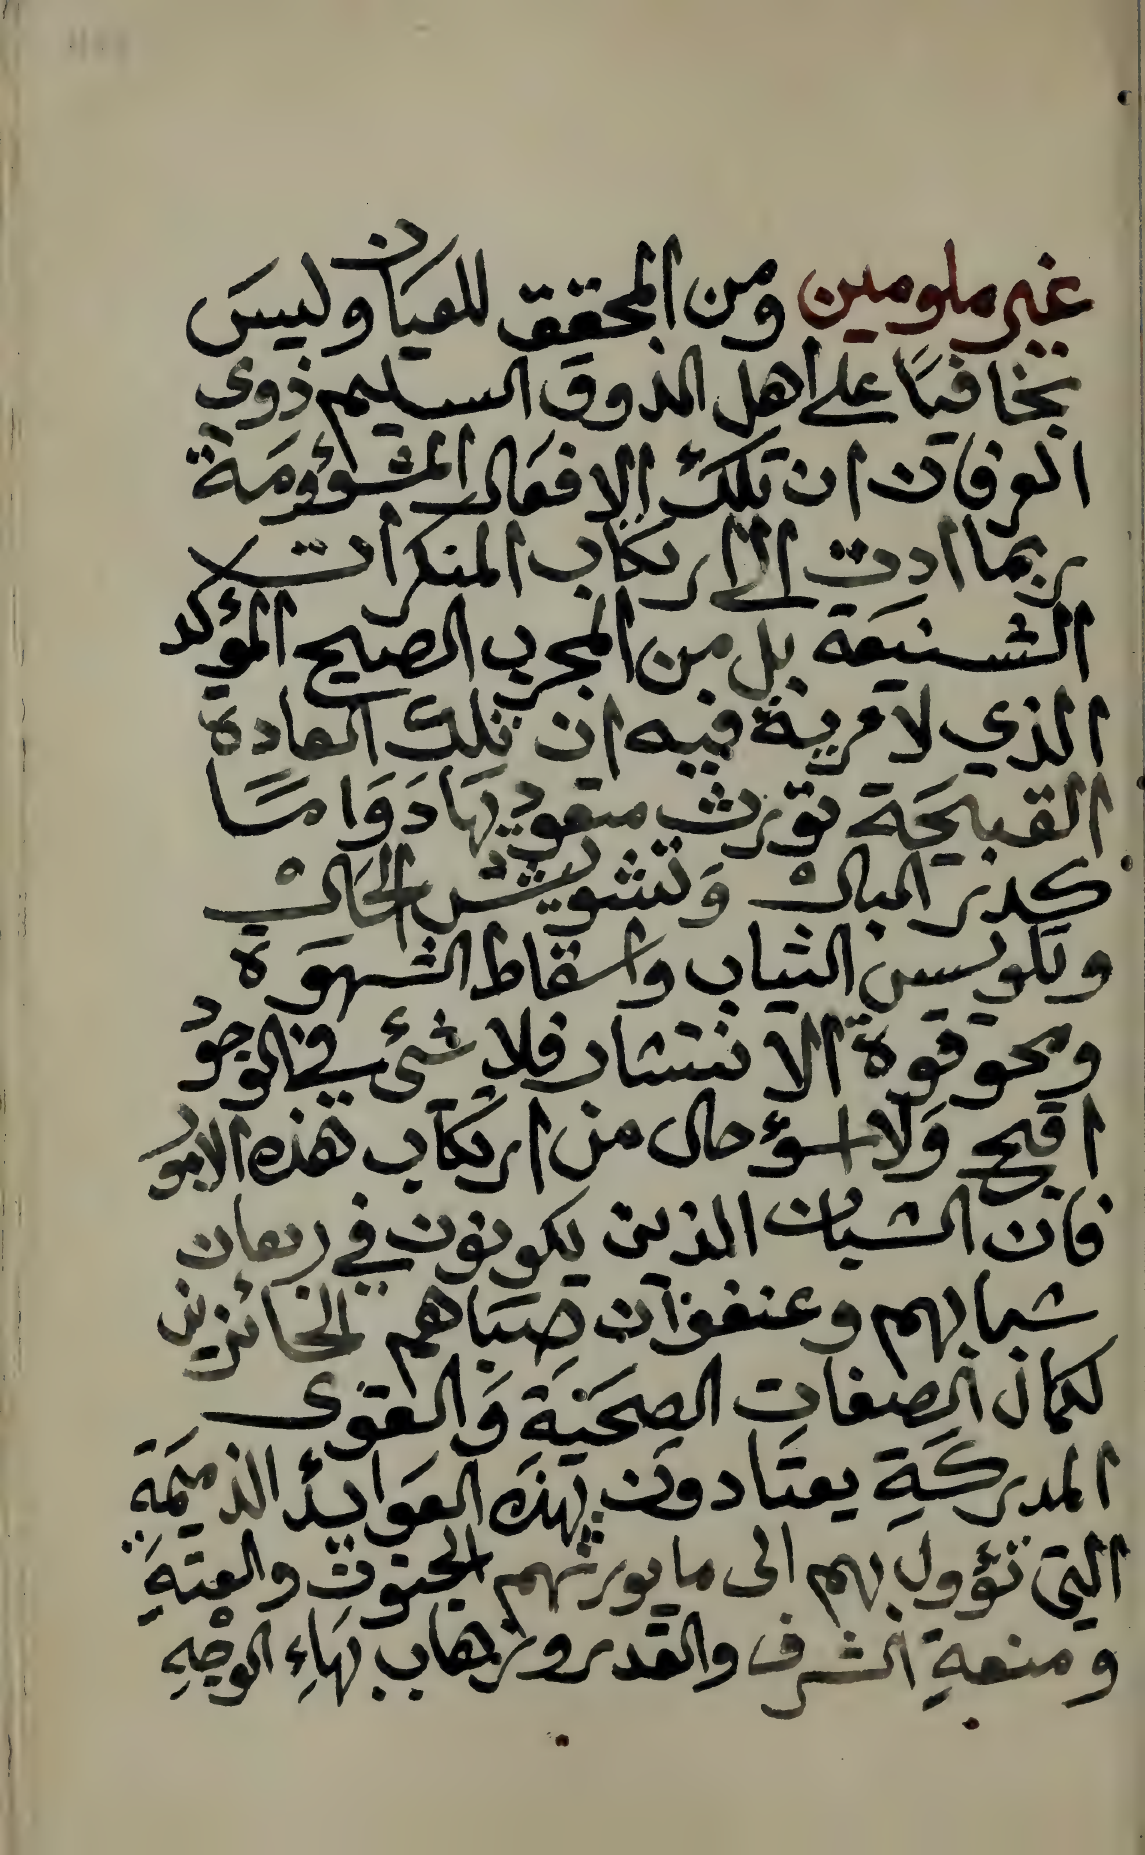 غير ملومين ومن المحقق للعيان وليسَ
بخافياً على اهل الذوق السليم ذوي
العرفان ان تلك الافعال المشؤومَة
ربما ادت الى ارتكاب المنكرات
الشنيعَة بل من المجرب الصحيح المؤكد
الذي لا مرية فيه ان تلك العادة
القبيحَة تورث متعوديها دَوَامًا
كدر البال وَتشويش الحَال
وتكويس الثياب واسقاط الشهوَة
ومحو قوة الانتشار فلا شئ في الوجود
اقبح وَلا اسؤ حال من ارتكاب هذه الامور
فان الشبان الذين يكونون في ريعان
شبابهم وعنفوان صِبَاهم الحائزين
لكمال الصفات الصحَيَة وَالقوى
المدركَةِ يعتادون بهذه العوايد الذميمَةِ
التي تؤول بهم الى ما يورثهم الجنون والعتهِ
ومنعةِ الشرف والقدر وذهاب بهاءِ الوجهِ